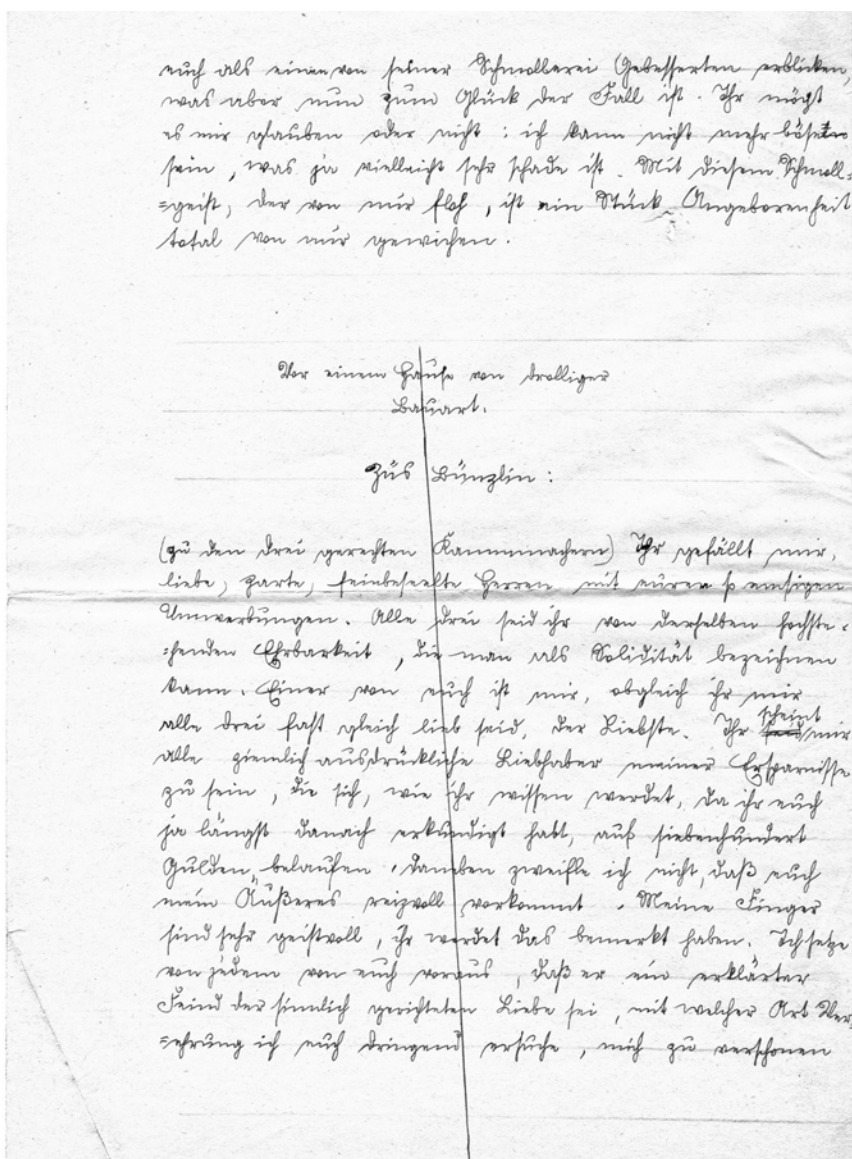 euch als einen von seiner Schmollerei Gebesserten erblicken,
was aber nun zum Glück der Fall ist. Ihr mögt
es mir glauben oder nicht: ich kann nicht mehr böse
sein, was ja vielleicht sehr schade ist. Mit diesem Schmoll=
=geist, der von mir floh, ist ein Stück Angeborenheit
total von mir gewichen.
Vor einem Hause von drolliger
Bauart.
Züs Bünzlin:
(zu den drei gerechten Kammmachern) Ihr gefällt mir,
liebe, zarte, feinbeseelte Herren mit euren so emsigen
Umwerbungen. Alle drei seid ihr von derselben hochste=
=henden Ehrbarkeit, die man als Solidität bezeichnen
kann. Einer von euch ist mir, obgleich ihr mir
alle drei fast gleich lieb seid, der Liebste. Ihr scheint mir
alle ziemlich ausdrückliche Liebhaber meiner Ersparnisse
zu sein, die sich, wie ihr wissen werdet, da ihr euch
ja längst danach erkundigt habt, auf siebenhundert
Gulden belaufen. Daneben zweifle ich nicht, daß euch
mein Äußeres reizvoll vorkommt. Meine Finger
sind sehr geistvoll, ihr werdet das bemerkt haben. Ich setze
von jedem von euch voraus, daß er ein erklärter
Feind der sinnlich gerichteten Liebe sei, mit welcher Art Ver=
=ehrung ich euch dringend ersuche, mich zu verschonen